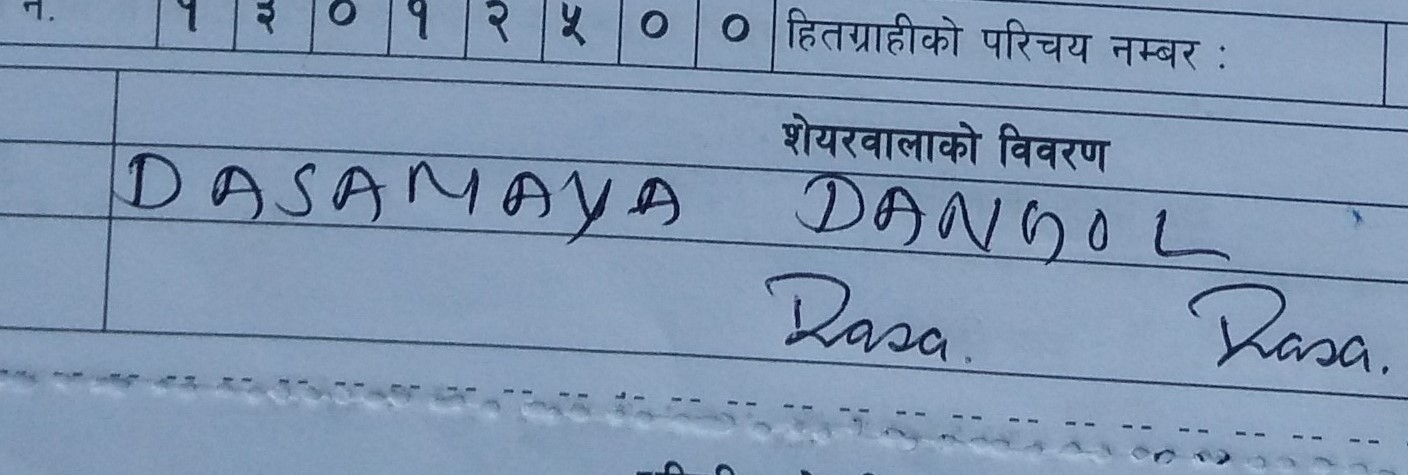 नं. १ ३ ० १ २ ५ ० ० हितग्राहीको परिचय नम्बर :
शेयरवालाको विवरण
DASAMAYA DANGOL
Dasa. Dasa.